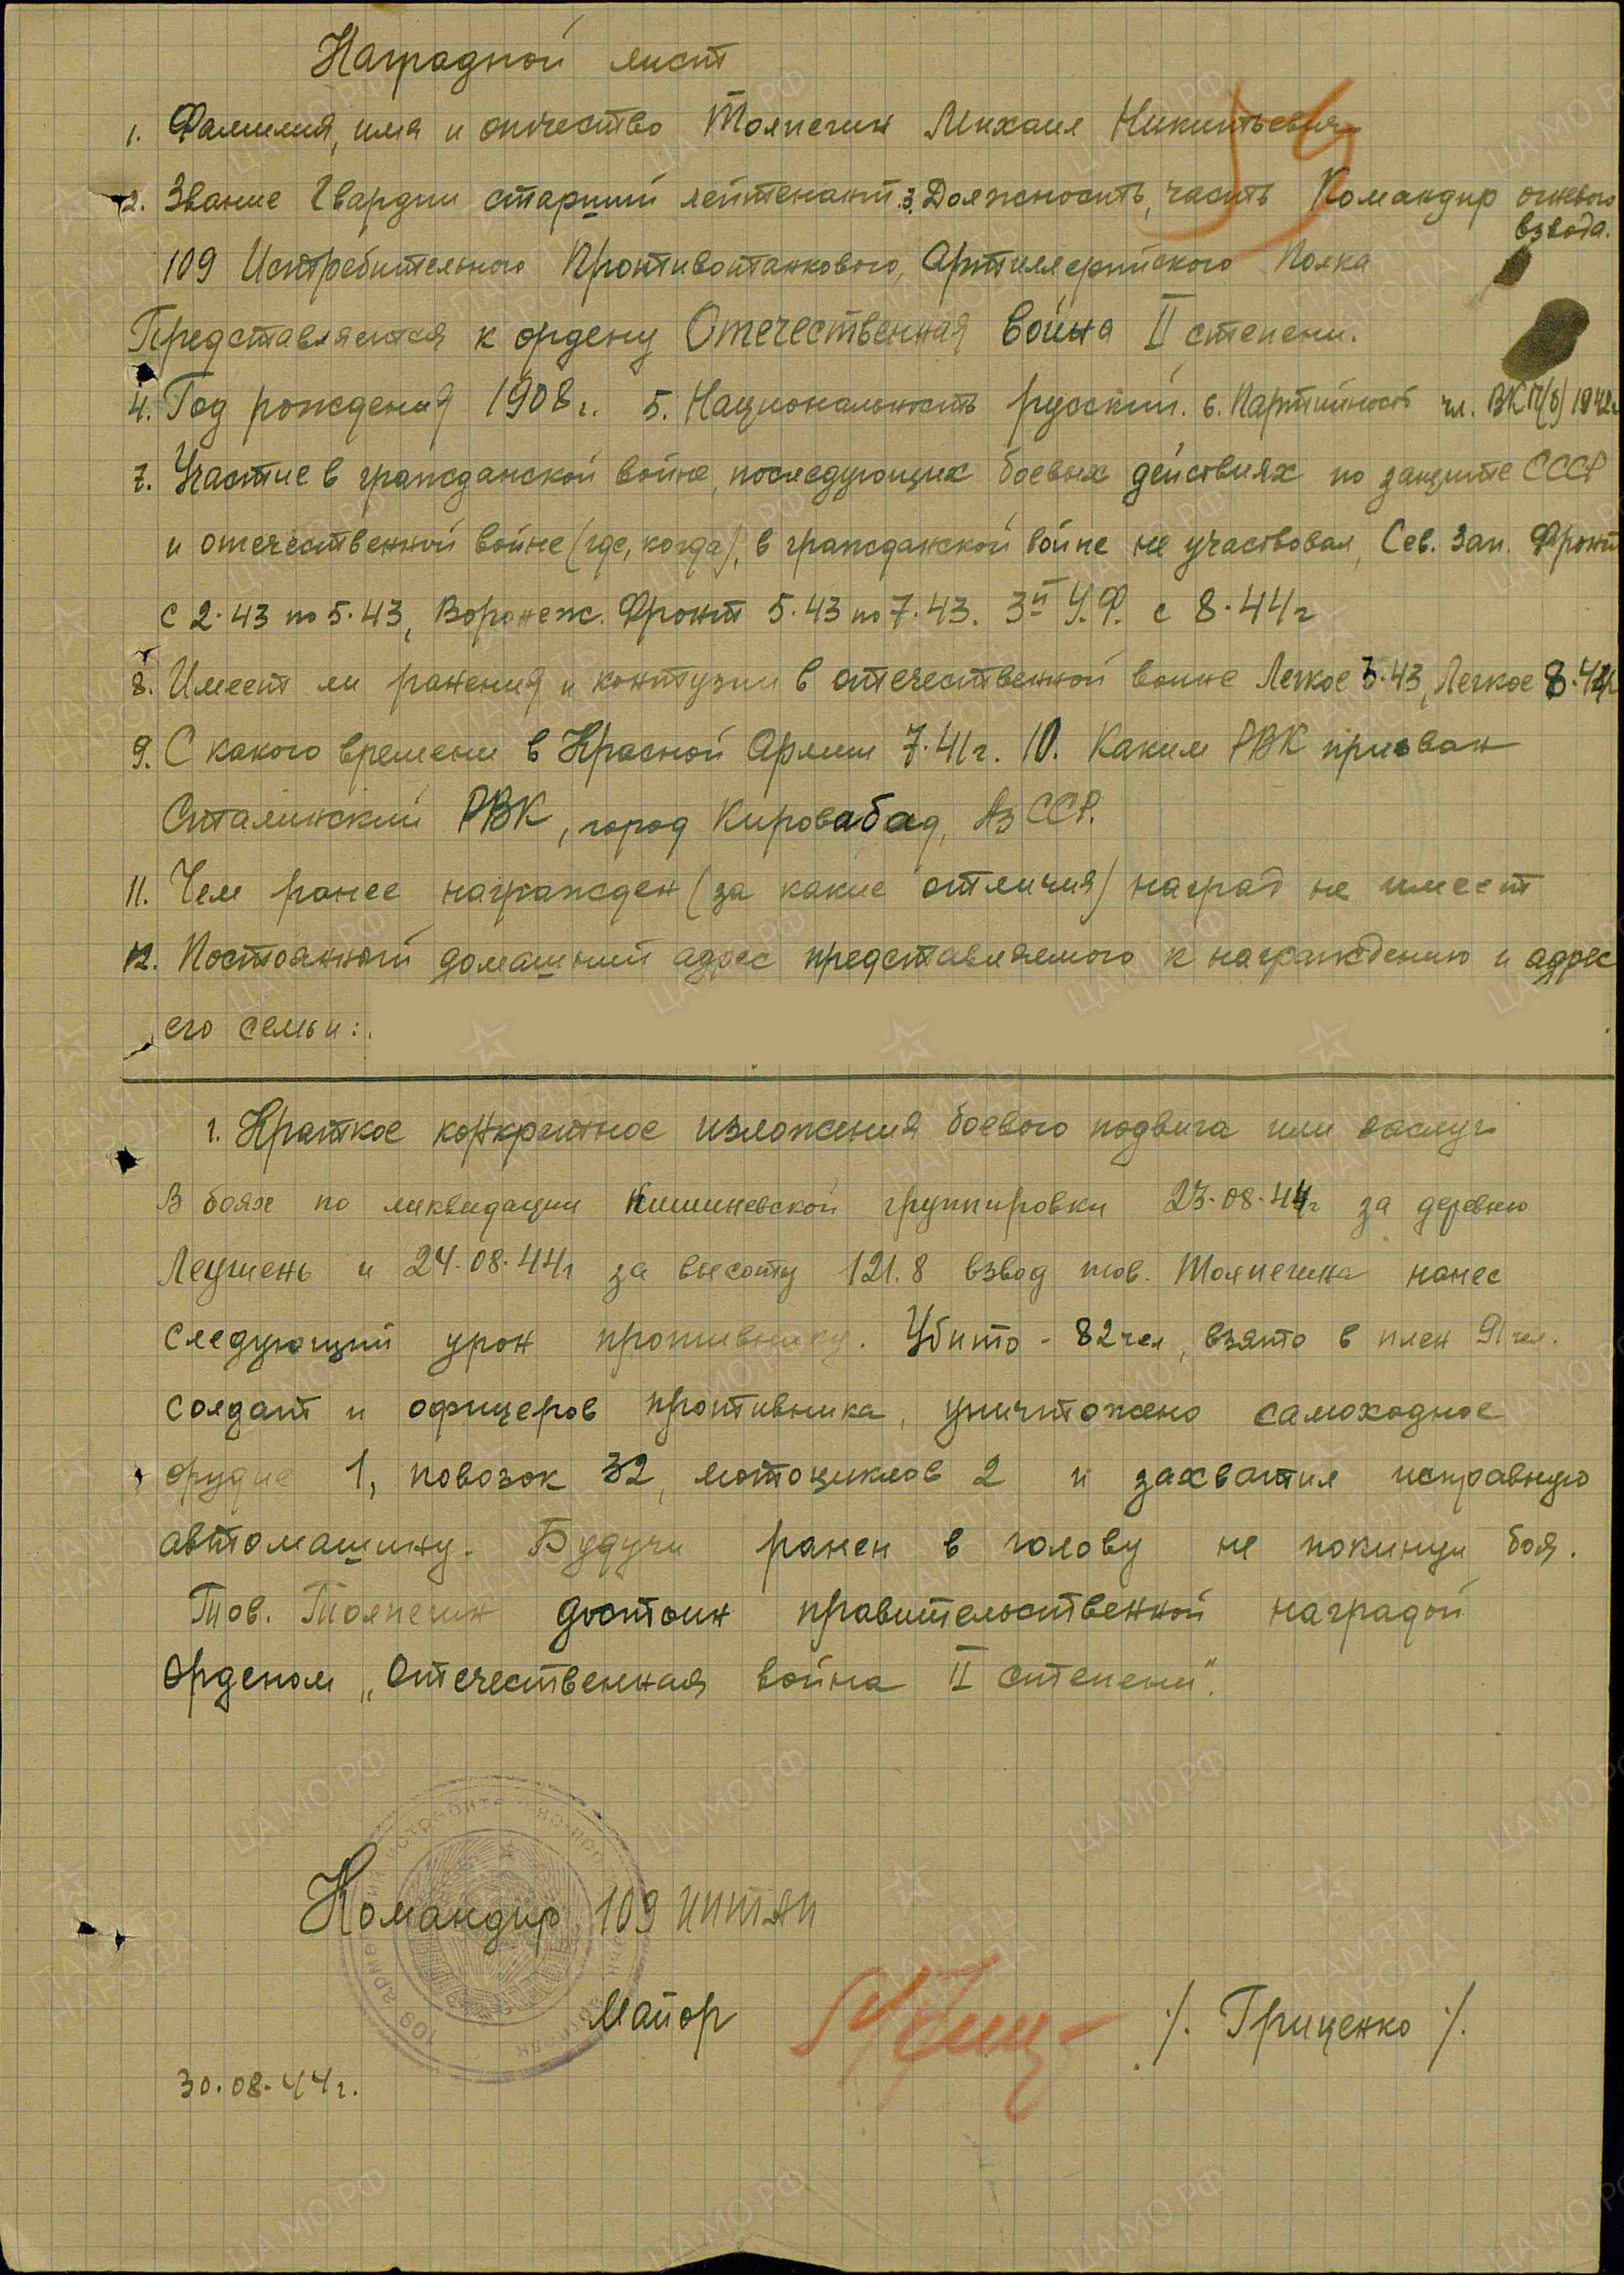 Наградной лист
1. Фамилия, имя и отчество Толпегин Михаил Никитьевич
2. Звание Гвардии старший лейтенант. 3. Должность, часть Командир огневого
взвода.
109 Истребительного Противотанкового, Артиллерийского Полка
Представляется к ордену Отечественная война II степени.
4. Год рождения 1908 г. 5. Национальность русский. 6. Партийность чл. ВКП(б) 1942г
7. Участие в гражданской войне, последующих боевых действиях по защите СССР
и отечественной войне (где, когда), в гражданской войне не участвовал, Сев. Зап. Фронт
с 2.43 по 5.43, Воронеж. Фронт 5.43 по 7.43. 3й У.Ф. с 8.44 г
8. Имеет ли ранения и контузии в отечественной воине Легкое 3.43, Легкое 8.44г
9. С какого времени в Красной Армии 7.41 г. 10. Каким РВК призван
Сталинский РВК, город Кировабад, Аз ССР.
11. Чем ранее награжден (за какие отличия) наград не имеет
12. Постоянный домашний адрес представляемого к награждению и адрес
его семьи:
1. Краткое конкретное изложения боевого подвига или заслуг
В боях по ликвидации Кишиневской группировки 23.08.44г за деревню
Леушень и 24.08.44г за высоту 121.8 взвод тов. Толпегина нанес
следующий урон противнику. Убито - 82 чел, взято в плен 91 чел.
солдат и офицеров противника, уничтожено самоходное
орудие 1, повозок 32, мотоциклов 2 и захватил исправную
автомашину. Будучи ранен в голову не покинул боя.
Тов. Толпегин достоин правительственной наградой
Орденом „Отечественная война II степени".
Командир 109 ИПТАП
Майор /. Гриценко /.
30.08.44 г.